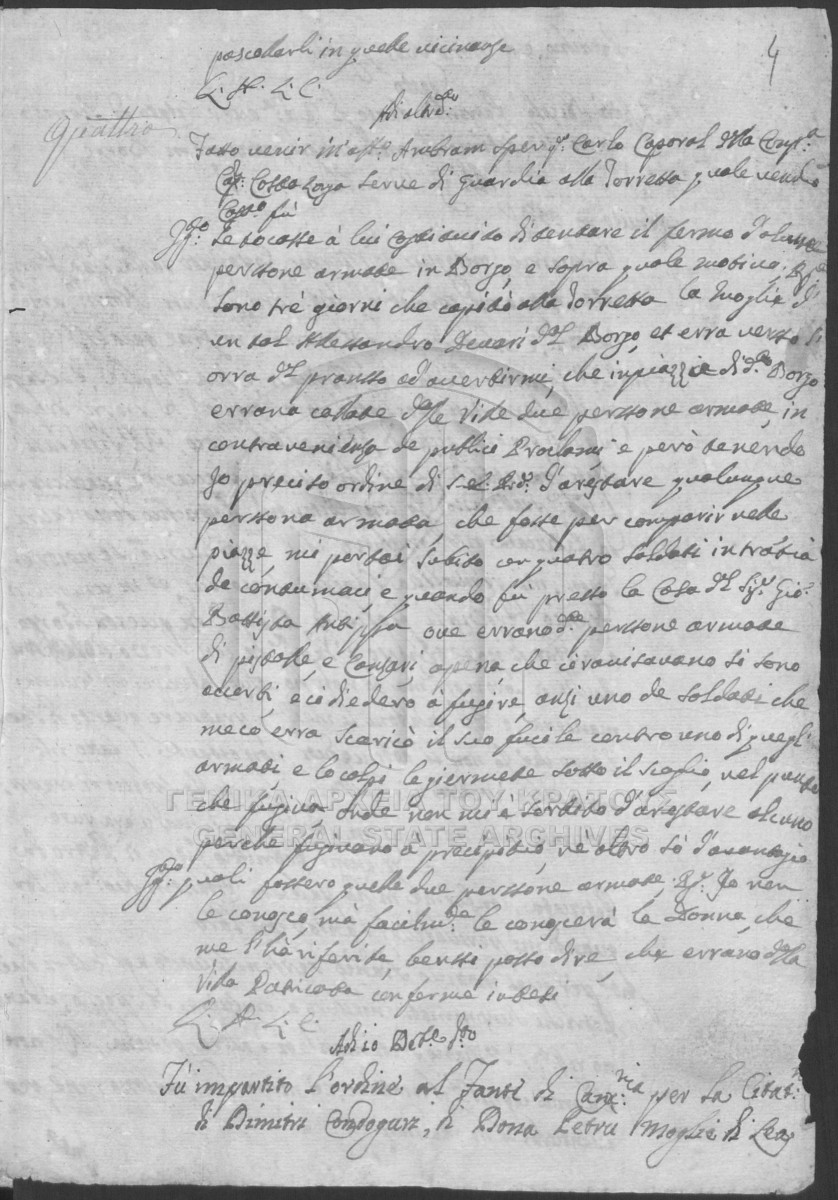 pascolarli in quelle vicinanze
4
L: H: L: C:
Adi oltrd:to
Quattro
Fatto venir in off:o Ambram Sper q: Carlo Caporal della Comp:a
Cap: Serve di Guardia alla Torretta quale
fù
Jg:to Se toccasse à lui di tentare il fermo d'alcune
perssone armate in Borgo, e sopra quale motivo. R:de
Sono trè giorni che capitò alla Torretta la Moglie d'
un tal Allessandro d:l Borgo et erra versso
orra d:l pransso ad avertirmi, che in piazza di d:to Borgo
errano callate dalle Ville due perssone armate, in
contraveniensa de publici Proclami, e però tenendo
Jo preciso ordine di d'arestare qualunque
perssona armata, che fosse per comparir nelle
piazze mi portai subito con quatro soldati in traccia
de contumaci, e quando fu presso la Casa d:l Sig:r Gio:
Battista ove errano d:e perssone armate
di pistolle, e Cangiari, apena che ci ravisavano si sono
acerti, e ci diedero à fugire, anzi uno de soldati che
meco erra scaricò il suo fucile contro uno di quegli
armati e lo colpì legiermente sotto il scaglio, nel punto
che fugiva, onde non mi è sortito d'arestare alcuno
perche fugivano à precipitio, ne altro sò d'avantagio
ΓΕΝΙΚΑ ΑΡΧΕΙΑ ΤΟΥ ΚΡΑΤΟΥΣ
GENERAL STATE ARCHIVES
Jg:to quali fossero quelle due perssone armate. R:de Jo non
le conosco, mà facilm:te le conoscerà la Donna, che
me l'hà riferito, bensì posso dire, che errano d:lla
Villa Paticata conforme intesi
L: H: L: C:
Adi 10 Det:e
Fù impartito l'ordine al Fante di Canc:ria per la Citat:n
di Dimitri Condoguri, di Dona Petru Moglie di